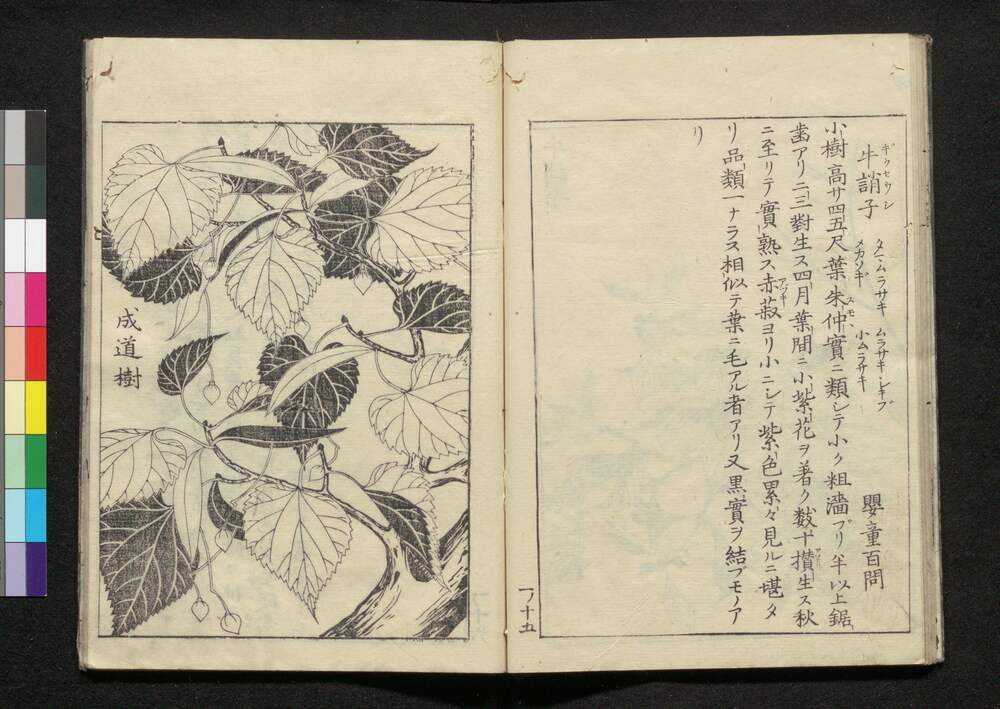 牛誚子 タニムラサキ ムラサキシキブ 嬰童百問
ギウセウシ
メカソギ 小ムラサキ
小樹高サ四五尺葉朱仲實ニ類シテ小ク粗濇ナリ半以上鋸
スモヽ
齒アリ二三對生ス四月葉間ニ小紫花ヲ著ク數十攢生ス秋
ニ至リテ實熟ス赤菽ヨリ小ニシテ紫色累々見ルニ堪タ
アヅキ
リ品類一ナラス相似テ葉ニ毛アル者アリ又黒實ヲ結ブモノア
リ
一ノ十五
成道樹